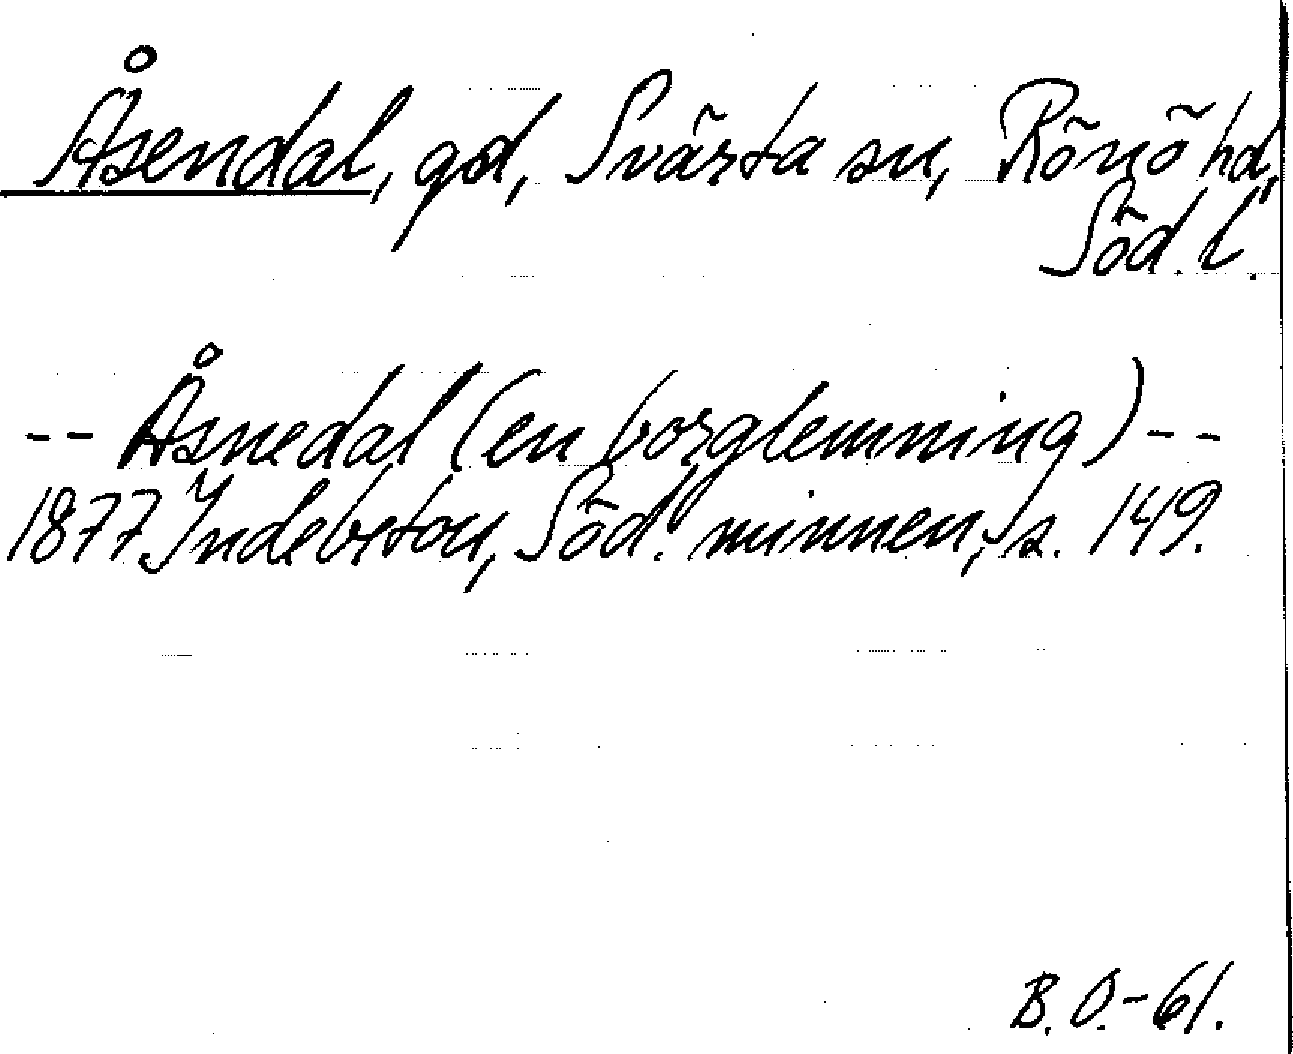 Åsendal, gd, Svärta sn, Rönö hd,
Söd. l.
-- Åsnedal (en borglemning) --
1877 Indebetou, Söd. minnen, s. 149.
B. O. - 61.